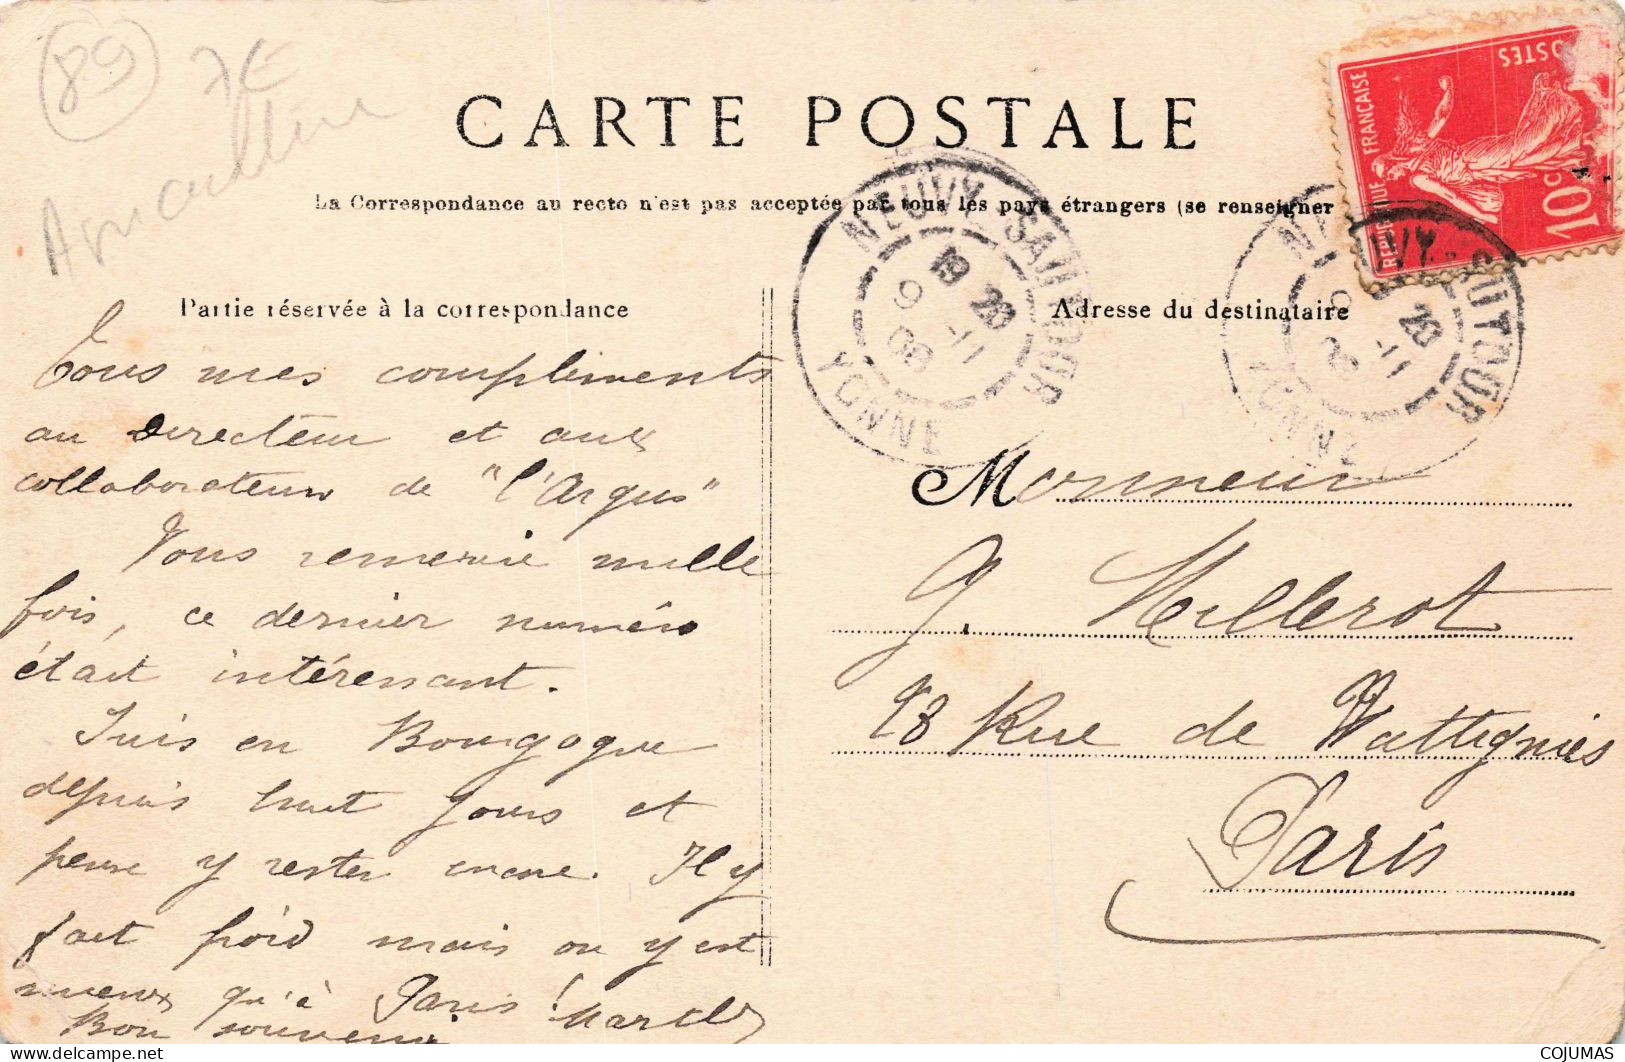 89
7€
CARTE POSTALE
La Correspondance au recto n'est pas acceptée par tous les pays étrangers (se renseigner
REPUBLIQUE FRANÇAISE
POSTES
10c
NEUVY-SAUTOUR
19 20
9 -11
08
YONNE
NEUVY-SAUTOUR
20
9 -11
YONNE
Partie réservée à la correspondance
Adresse du destinataire
Tous mes compliments
au Directeur et aux
collaborateurs de "l'Argus"
Vous remercie mille
fois, ce dernier numéro
était intéressant.
Suis en Bourgogne
depuis huit jours et
pense y rester encore. Il y
fait froid mais on y est
mieux qu'à Paris !
Bon souvenir
Marcel
Monsieur
G. Millerot
98 Rue de Wattignies
Paris
COJUMAS
delcampe.net